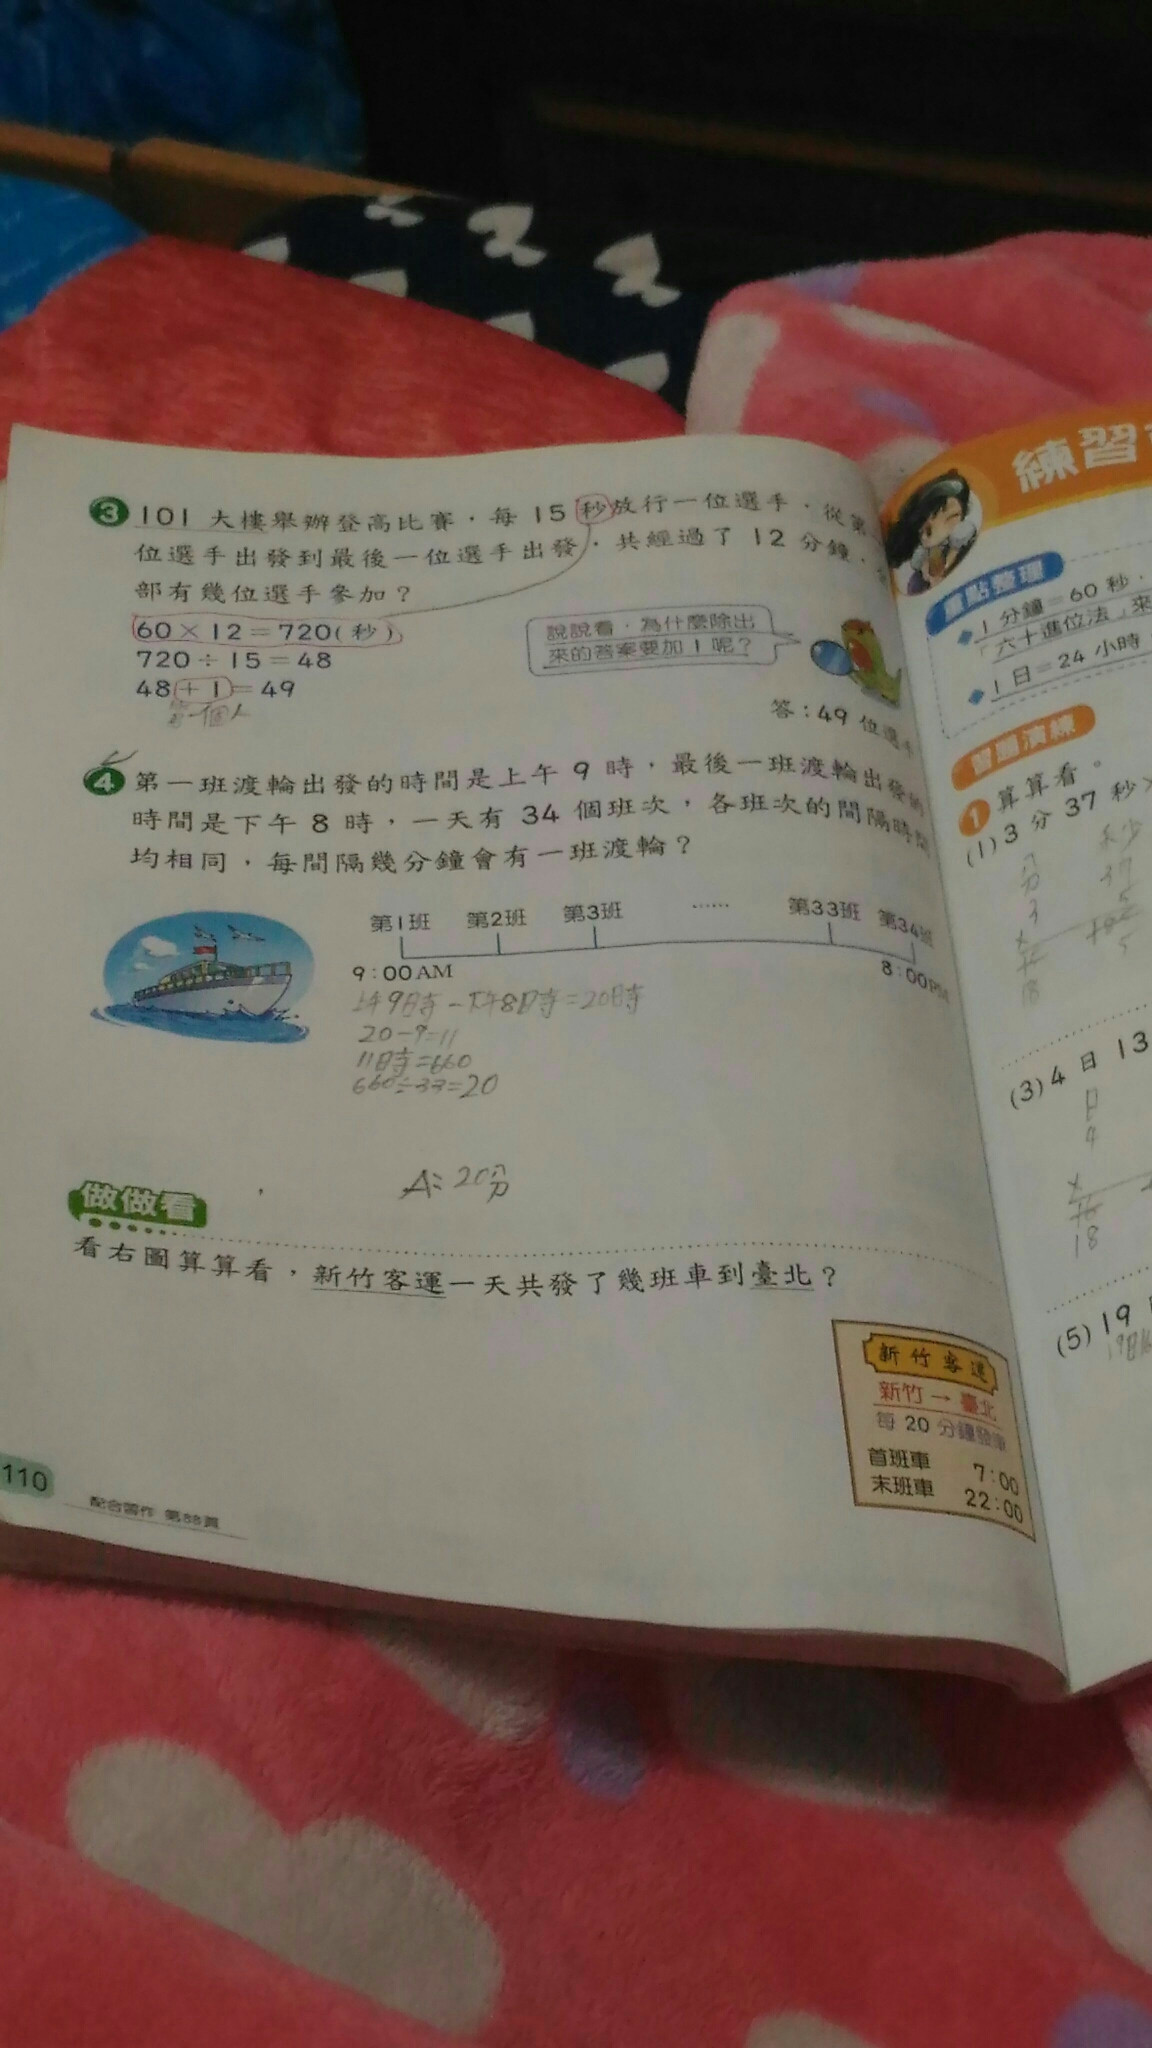 3 101 大樓舉辦登高比賽，每 15 秒放行一位選手，從第
位選手出發到最後一位選手出發，共經過了 12 分鐘，
部有幾位選手參加？
60 × 12 = 720（秒）
720 ÷ 15 = 48
48 + 1 = 49
一個人
說說看，為什麼除出
來的答案要加 1 呢？
答：49 位選手
4 第一班渡輪出發的時間是上午 9 時，最後一班渡輪出發的
時間是下午 8 時，一天有 34 個班次，各班次的間隔時間
均相同，每間隔幾分鐘會有一班渡輪？
第1班 第2班 第3班 …… 第33班 第34班
9：00 AM 8：00 PM
上午9時－下午8時=20時
20－9=11
11時=660
660÷33=20
A：20分
做做看
看右圖算算看，新竹客運一天共發了幾班車到臺北？
新竹客運
新竹 → 臺北
每 20 分鐘發車
首班車 7：00
末班車 22：00
110
配合習作 第88頁
練習
重點整理
◆ 1 分鐘 = 60 秒，
「六十進位法」來
◆ 1 日 = 24 小時
習題演練
1 算算看。
(1) 3 分 37 秒 ×
分 秒
3 37
× 5
18 5
(3) 4 日 13
日
4
×
18
(5) 19
19日